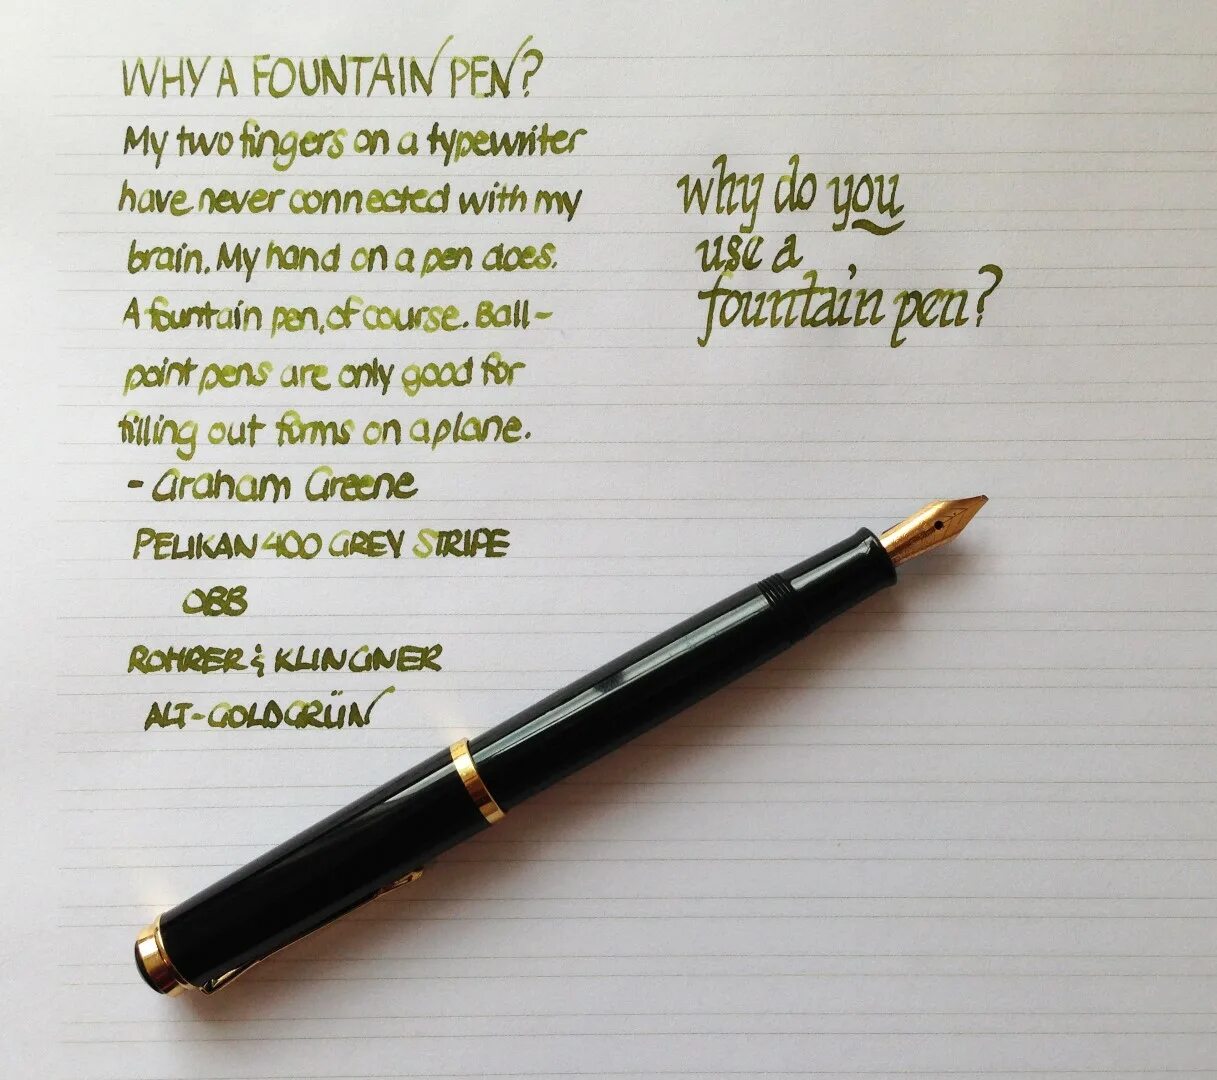 WHY A FOUNTAIN PEN?
My two fingers on a typewriter
have never connected with my
brain. My hand on a pen does.
A fountain pen, of course. Ball-
point pens are only good for
filling out forms on a plane.
- Graham Greene
PELIKAN 400 GREY STRIPE
OBB
ROHRER & KLINGNER
ALT-GOLDGRÜN
why do you
use a
fountain pen?